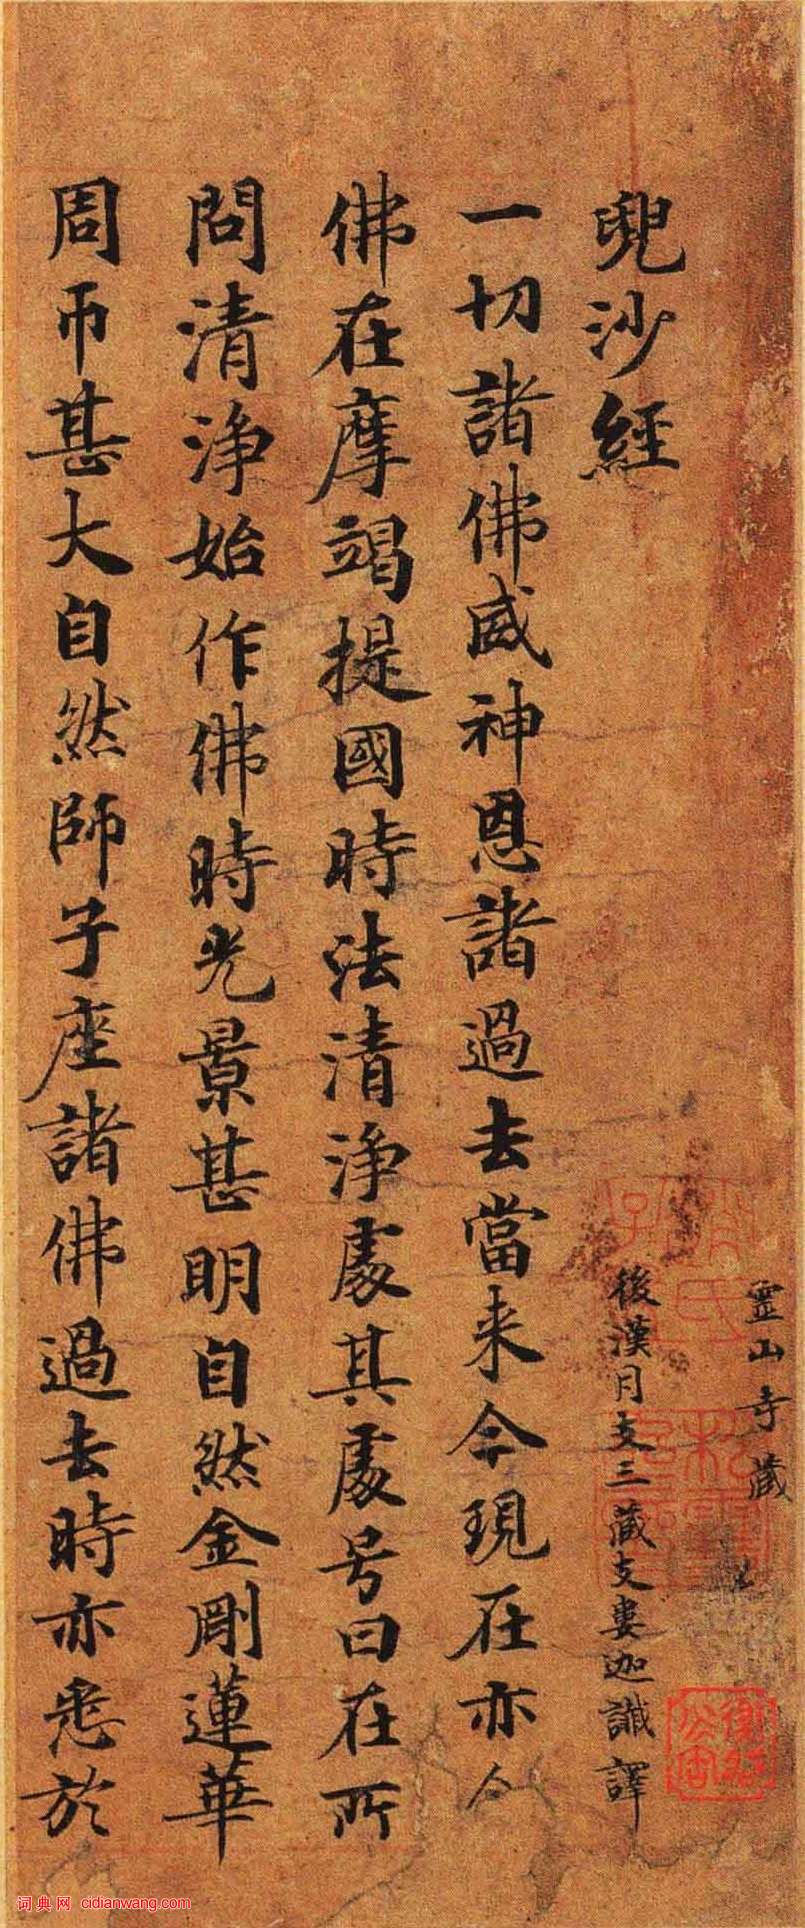 靈山寺藏
兜沙經
後漢月支三藏支婁迦讖譯
一切諸佛威神恩諸過去當来今現在亦尒
佛在摩竭提國時法清淨處其處号曰在所
問清淨始作佛時光景甚明自然金剛蓮華
周帀甚大自然師子座諸佛過去時亦悉於
词典网 cidianwang.com